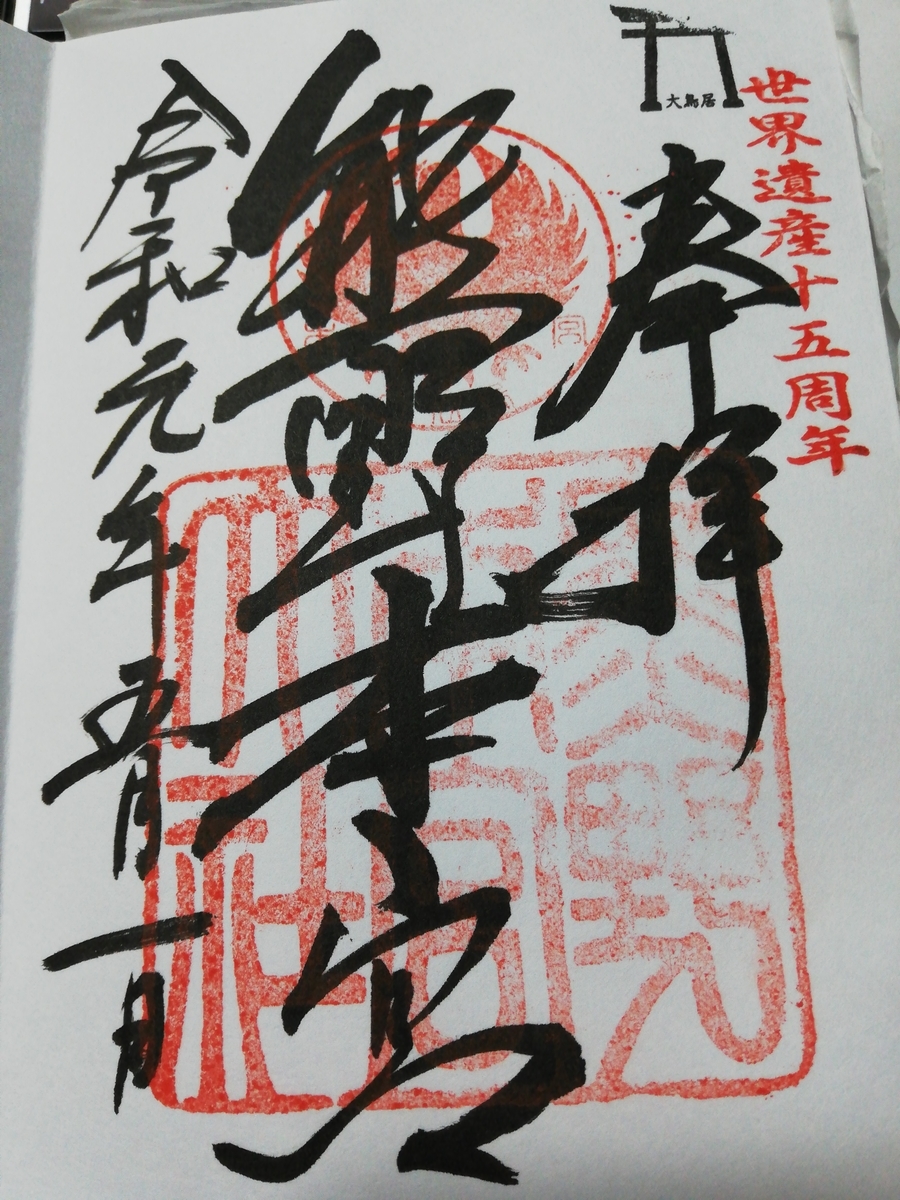 世界遺産十五周年
大鳥居
奉拝
熊野本宮
令和元年五月一日
熊野
本宮
大社